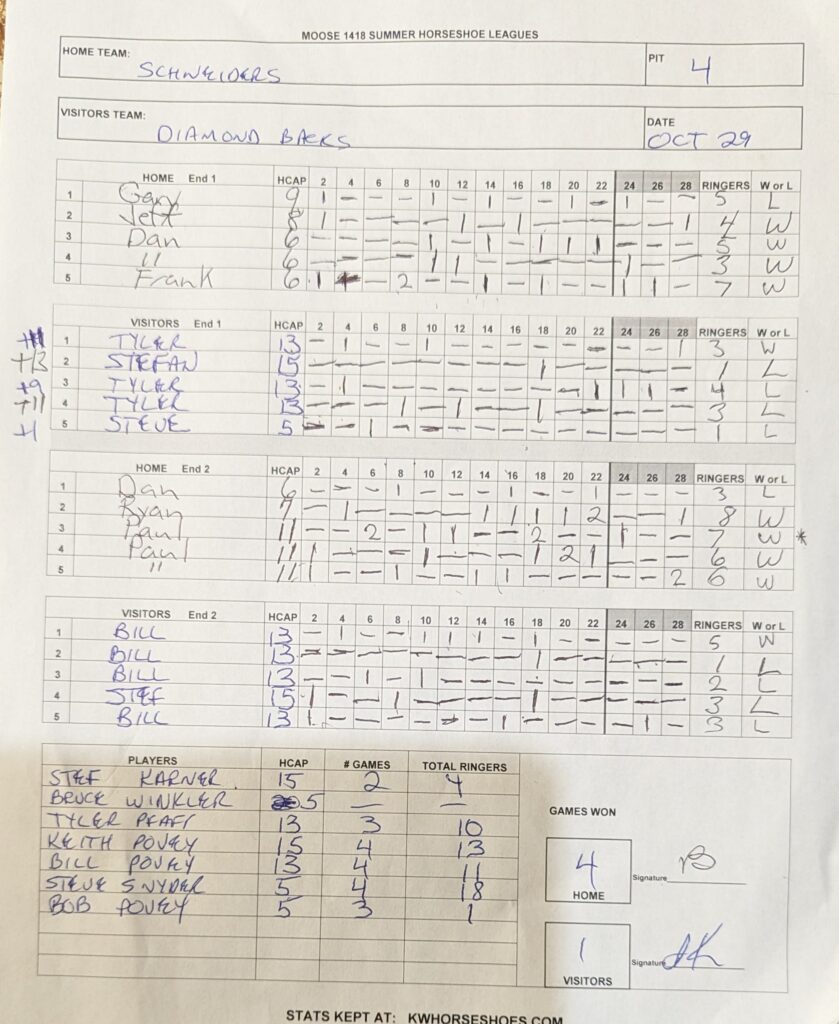 MOOSE 1418 SUMMER HORSESHOE LEAGUES
HOME TEAM: SCHNEIDERS PIT 4
VISITORS TEAM: DIAMOND BACKS DATE OCT 29
HOME End 1 HCAP 2 4 6 8 10 12 14 16 18 20 22 24 26 28 RINGERS W or L
1 Gary 9 1 - - - 1 - 1 - - 1 - 1 - - 5 L
2 Jeff 8 1 - - - - 1 - 1 - - - - - 1 4 W
3 Dan 6 - - - - 1 - 1 - 1 1 1 - - - 5 W
4 " 6 - - - - 1 1 - - - - - 1 - - 3 W
5 Frank 6 1 - 2 - - 1 - 1 - - 1 1 - 7 W
VISITORS End 1 HCAP 2 4 6 8 10 12 14 16 18 20 22 24 26 28 RINGERS W or L
1 TYLER 13 - 1 - - 1 - - - - - - - - 1 3 W
+13 2 STEFAN 15 - - - - - - - - 1 - - - - - 1 L
+9 3 TYLER 13 - 1 - - - - - - - - 1 1 1 - 4 L
+11 4 TYLER 13 - - - 1 - 1 - - 1 - - - - - 3 L
+1 5 STEVE 5 - - 1 - - - - - - - - - - - 1 L
HOME End 2 HCAP 2 4 6 8 10 12 14 16 18 20 22 24 26 28 RINGERS W or L
1 Dan 6 - - - 1 - - - 1 - - 1 - - - 3 L
2 Ryan 7 - 1 - - - - 1 1 1 1 2 - - 1 8 W
3 Paul 11 - - 2 - 1 1 - - 2 - - 1 - - 7 W *
4 Paul 11 1 - - - 1 - - - 1 2 1 - - - 6 W
5 " 11 1 - - 1 - - 1 1 - - - - - 2 6 W
VISITORS End 2 HCAP 2 4 6 8 10 12 14 16 18 20 22 24 26 28 RINGERS W or L
1 BILL 13 - 1 - - 1 1 1 - 1 - - - - - 5 W
2 BILL 13 - - - - - - - - 1 - - - - - 1 L
3 BILL 13 - - 1 - 1 - - - - - - - - - 2 L
4 STEF 15 1 - - 1 - - - - 1 - - - - - 3 L
5 BILL 13 1 - - - - - - 1 - - - - 1 - 3 L
PLAYERS HCAP # GAMES TOTAL RINGERS
STEF KARNER 15 2 4
BRUCE WINKLER 5 — —
TYLER PFAFF 13 3 10
KEITH POVEY 15 4 13
BILL POVEY 13 4 11
STEVE SNYDER 5 4 18
BOB POVEY 5 3 1
GAMES WON
4 Signature
HOME
1 Signature
VISITORS
STATS KEPT AT: KWHORSESHOES.COM